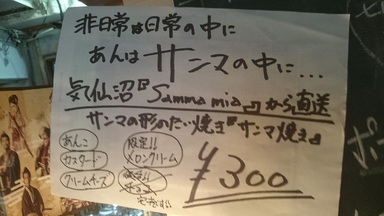 非日常は日常の中に
あんはサンマの中に…
気仙沼『Samma mia』から直送
サンマの形のたい焼き『サンマ焼き』
あんこ
カスタード
クリームチーズ
限定!!
メロンクリーム
限定!!
チョコ
¥300